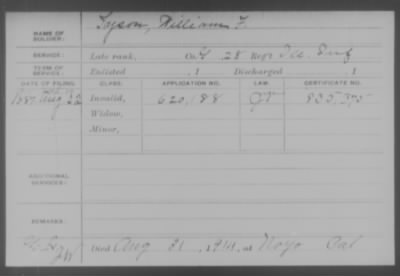 NAME OF SOLDIER: Tyson, William F.
SERVICE: Late rank, Co. G, 28 Reg't Ill. Inf
TERM OF SERVICE: Enlisted , 1 Discharged , 1
DATE OF FILING. CLASS. APPLICATION NO. LAW. CERTIFICATE NO.
1887 Aug 22 Invalid, 620,188 835,375
Widow,
Minor,
ADDITIONAL SERVICES:
REMARKS:
Died Aug 31, 1914, at Noyo Cal